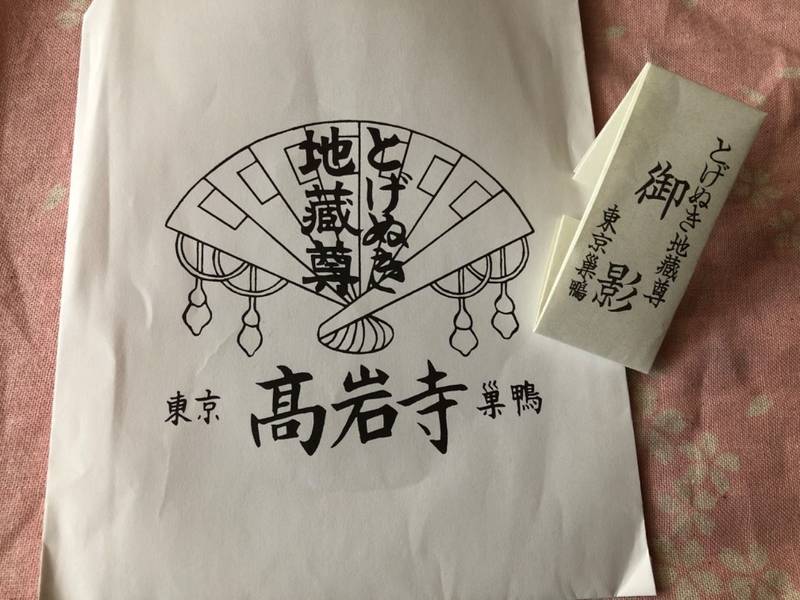 とげぬき
地蔵尊
東京 髙岩寺 巣鴨
とげぬき地蔵尊
御影
東京巣鴨